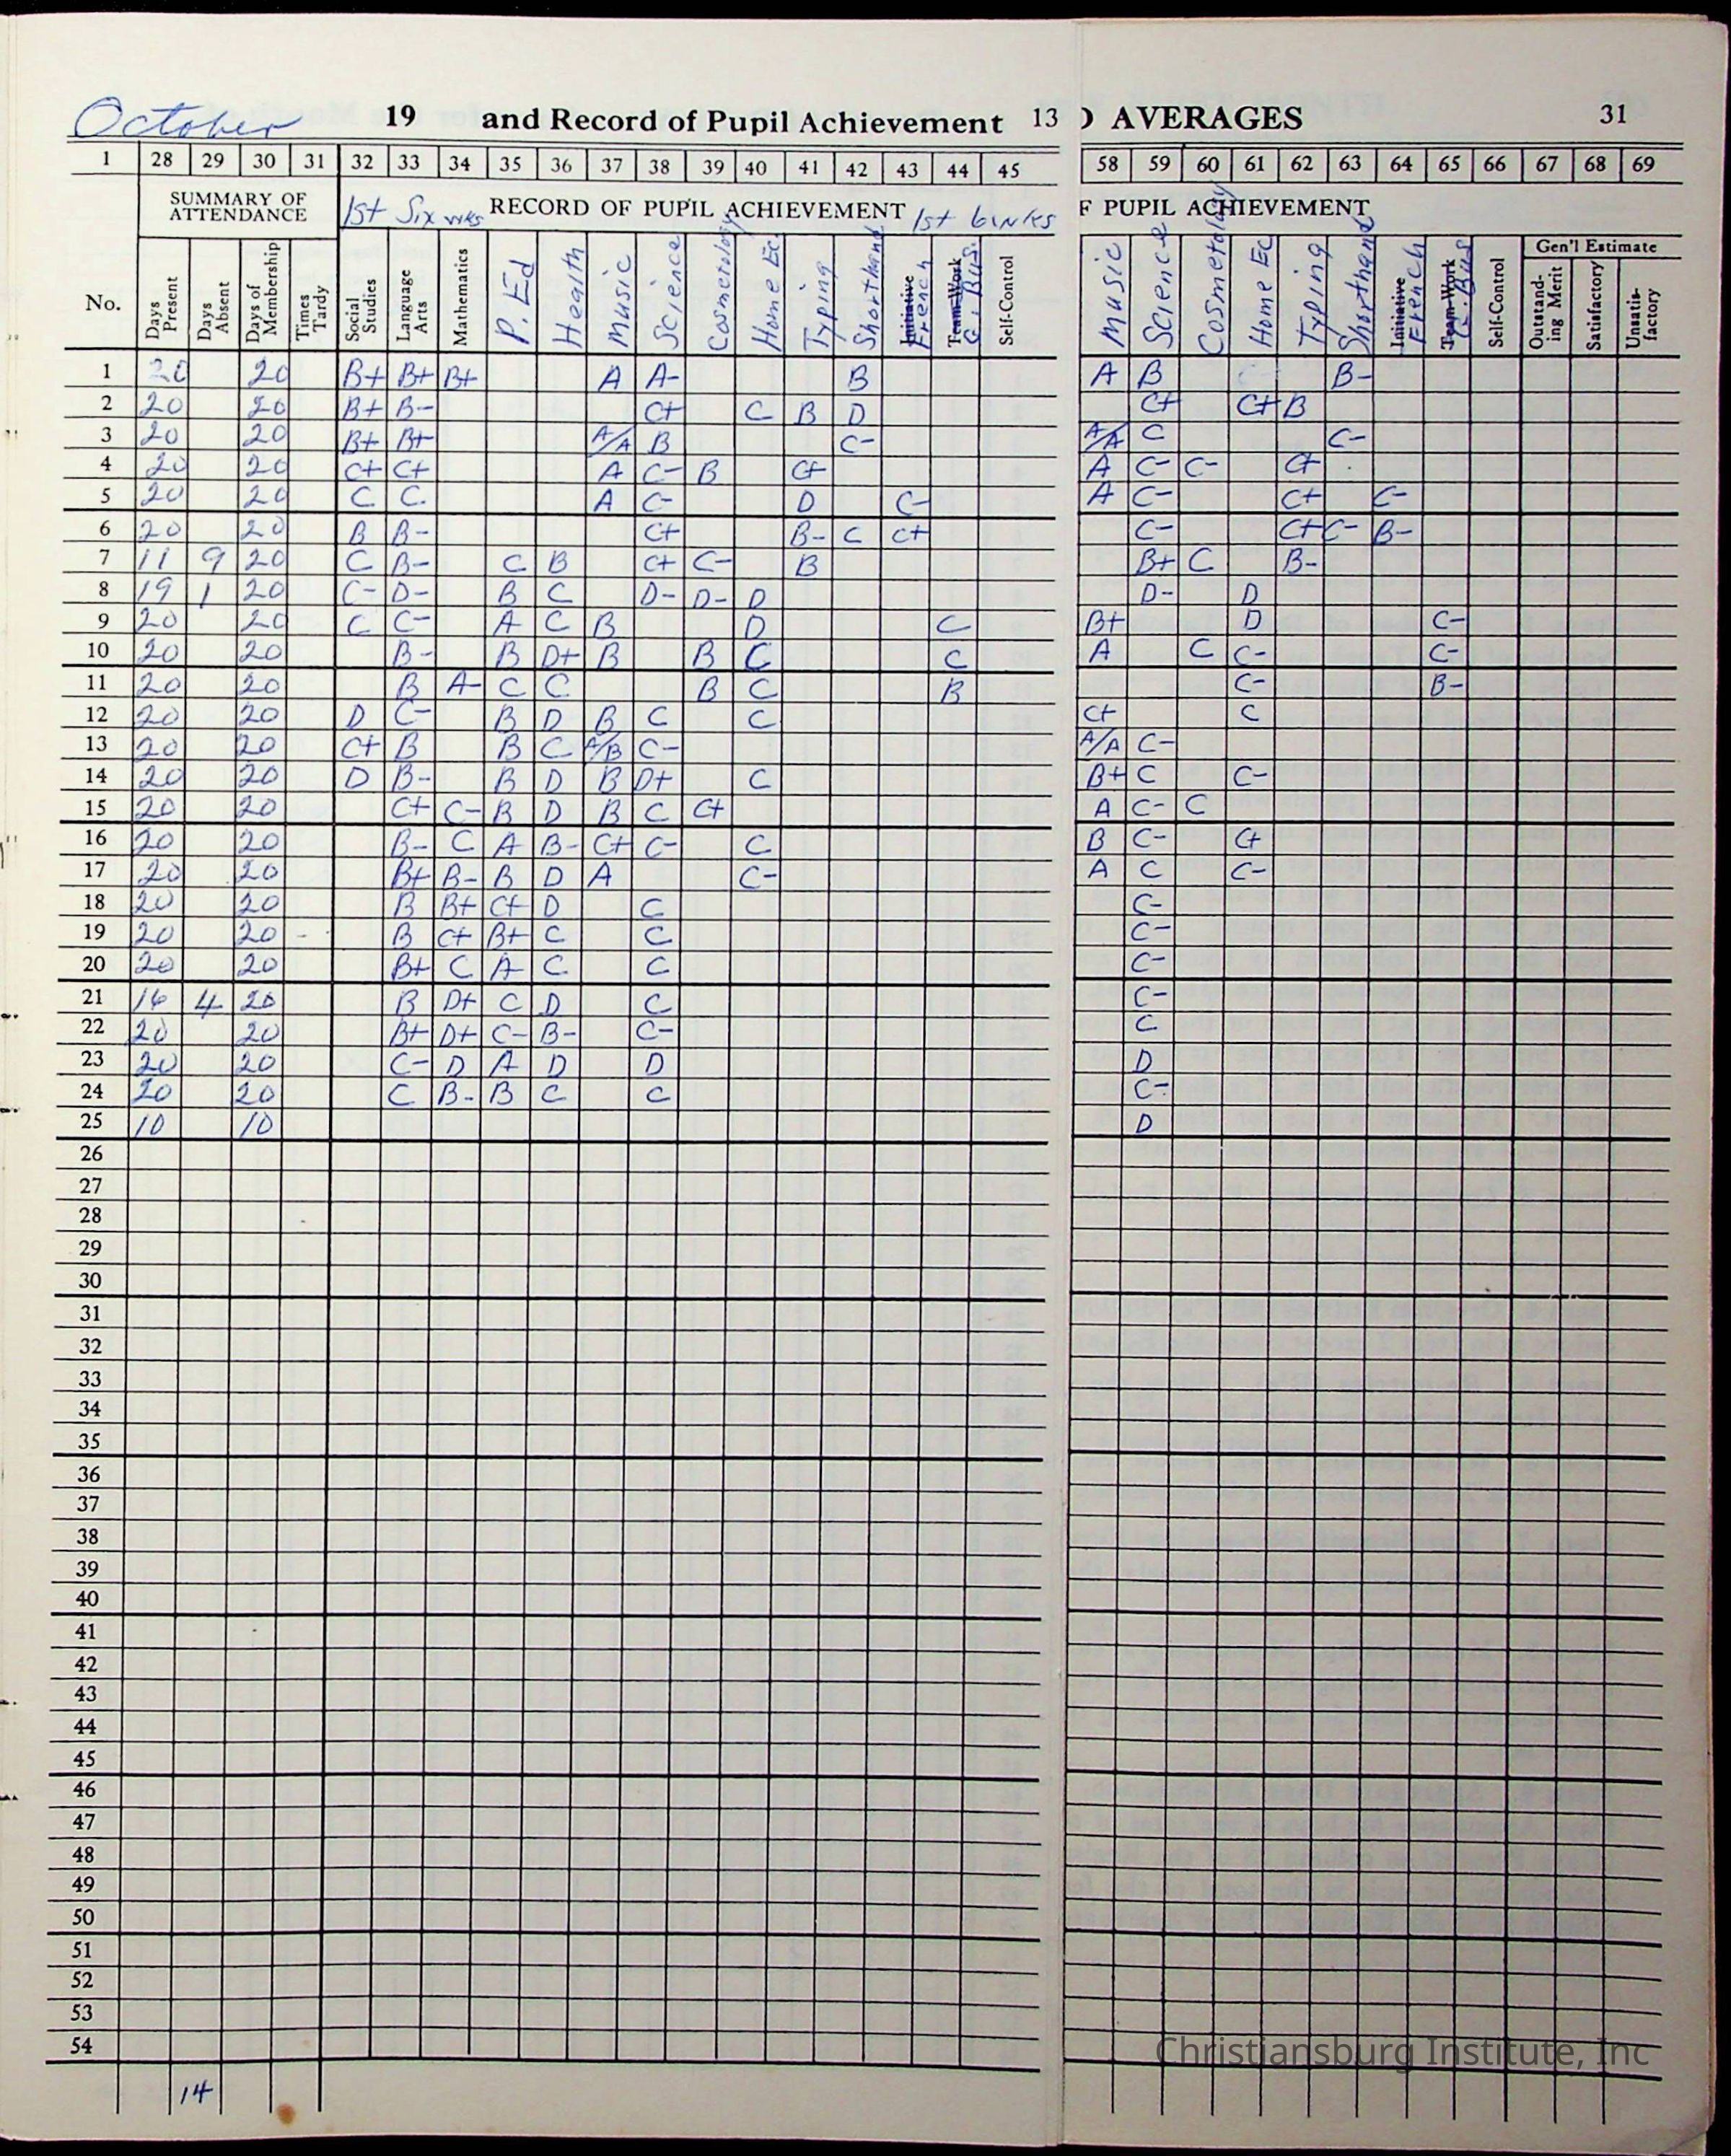 October 19 and Record of Pupil Achievement 13 D AVERAGES 31
1 28 29 30 31 32 33 34 35 36 37 38 39 40 41 42 43 44 45 58 59 60 61 62 63 64 65 66 67 68 69
SUMMARY OF ATTENDANCE 1st Six wks RECORD OF PUPIL ACHIEVEMENT 1st 6 wks F PUPIL ACHIEVEMENT
Gen'l Estimate
No. Days Present Days Absent Days of Membership Times Tardy Social Studies Language Arts Mathematics P. Ed Health Music Science Cosmetology Home Ec. Typing Shorthand Initiative French Team-Work G. Bus. Self-Control Music Science Cosmetology Home Ec Typing Shorthand Initiative French Team-Work G. Bus Self-Control Outstanding Merit Satisfactory Unsatisfactory
1 20 20 B+ B+ B+ A A- B A B B-
2 20 20 B+ B- C+ C B D C+ C+ B
3 20 20 B+ B+ A/A B C- A/A C C-
4 20 20 C+ C+ A C- B C+ A C- C- C+
5 20 20 C C A C- D C- A C- C+ C-
6 20 20 B B- C+ B- C C+ C- C+ C- B-
7 11 9 20 C B- C B C+ C- B B+ C B-
8 19 1 20 C- D- B C D- D- D D- D
9 20 20 C C- A C B D C B+ D C-
10 20 20 B- B D+ B B C C A C C- C-
11 20 20 B A- C C B C B C- B-
12 20 20 D C- B D B C C C+ C
13 20 20 C+ B B C A/B C- A/A C-
14 20 20 D B- B D B D+ C B+ C C-
15 20 20 C+ C- B D B C C+ A C- C
16 20 20 B- C A B- C+ C- C B C- C+
17 20 20 B+ B- B D A C- A C C-
18 20 20 B B+ C+ D C C-
19 20 20 B C+ B+ C C C-
20 20 20 B+ C A C C C-
21 16 4 20 B D+ C D C C-
22 20 20 B+ D+ C- B- C- C
23 20 20 C- D A D D D
24 20 20 C B- B C C C-
25 10 10 D
26
27
28
29
30
31
32
33
34
35
36
37
38
39
40
41
42
43
44
45
46
47
48
49
50
51
52
53
54
Christiansburg Institute, Inc
14